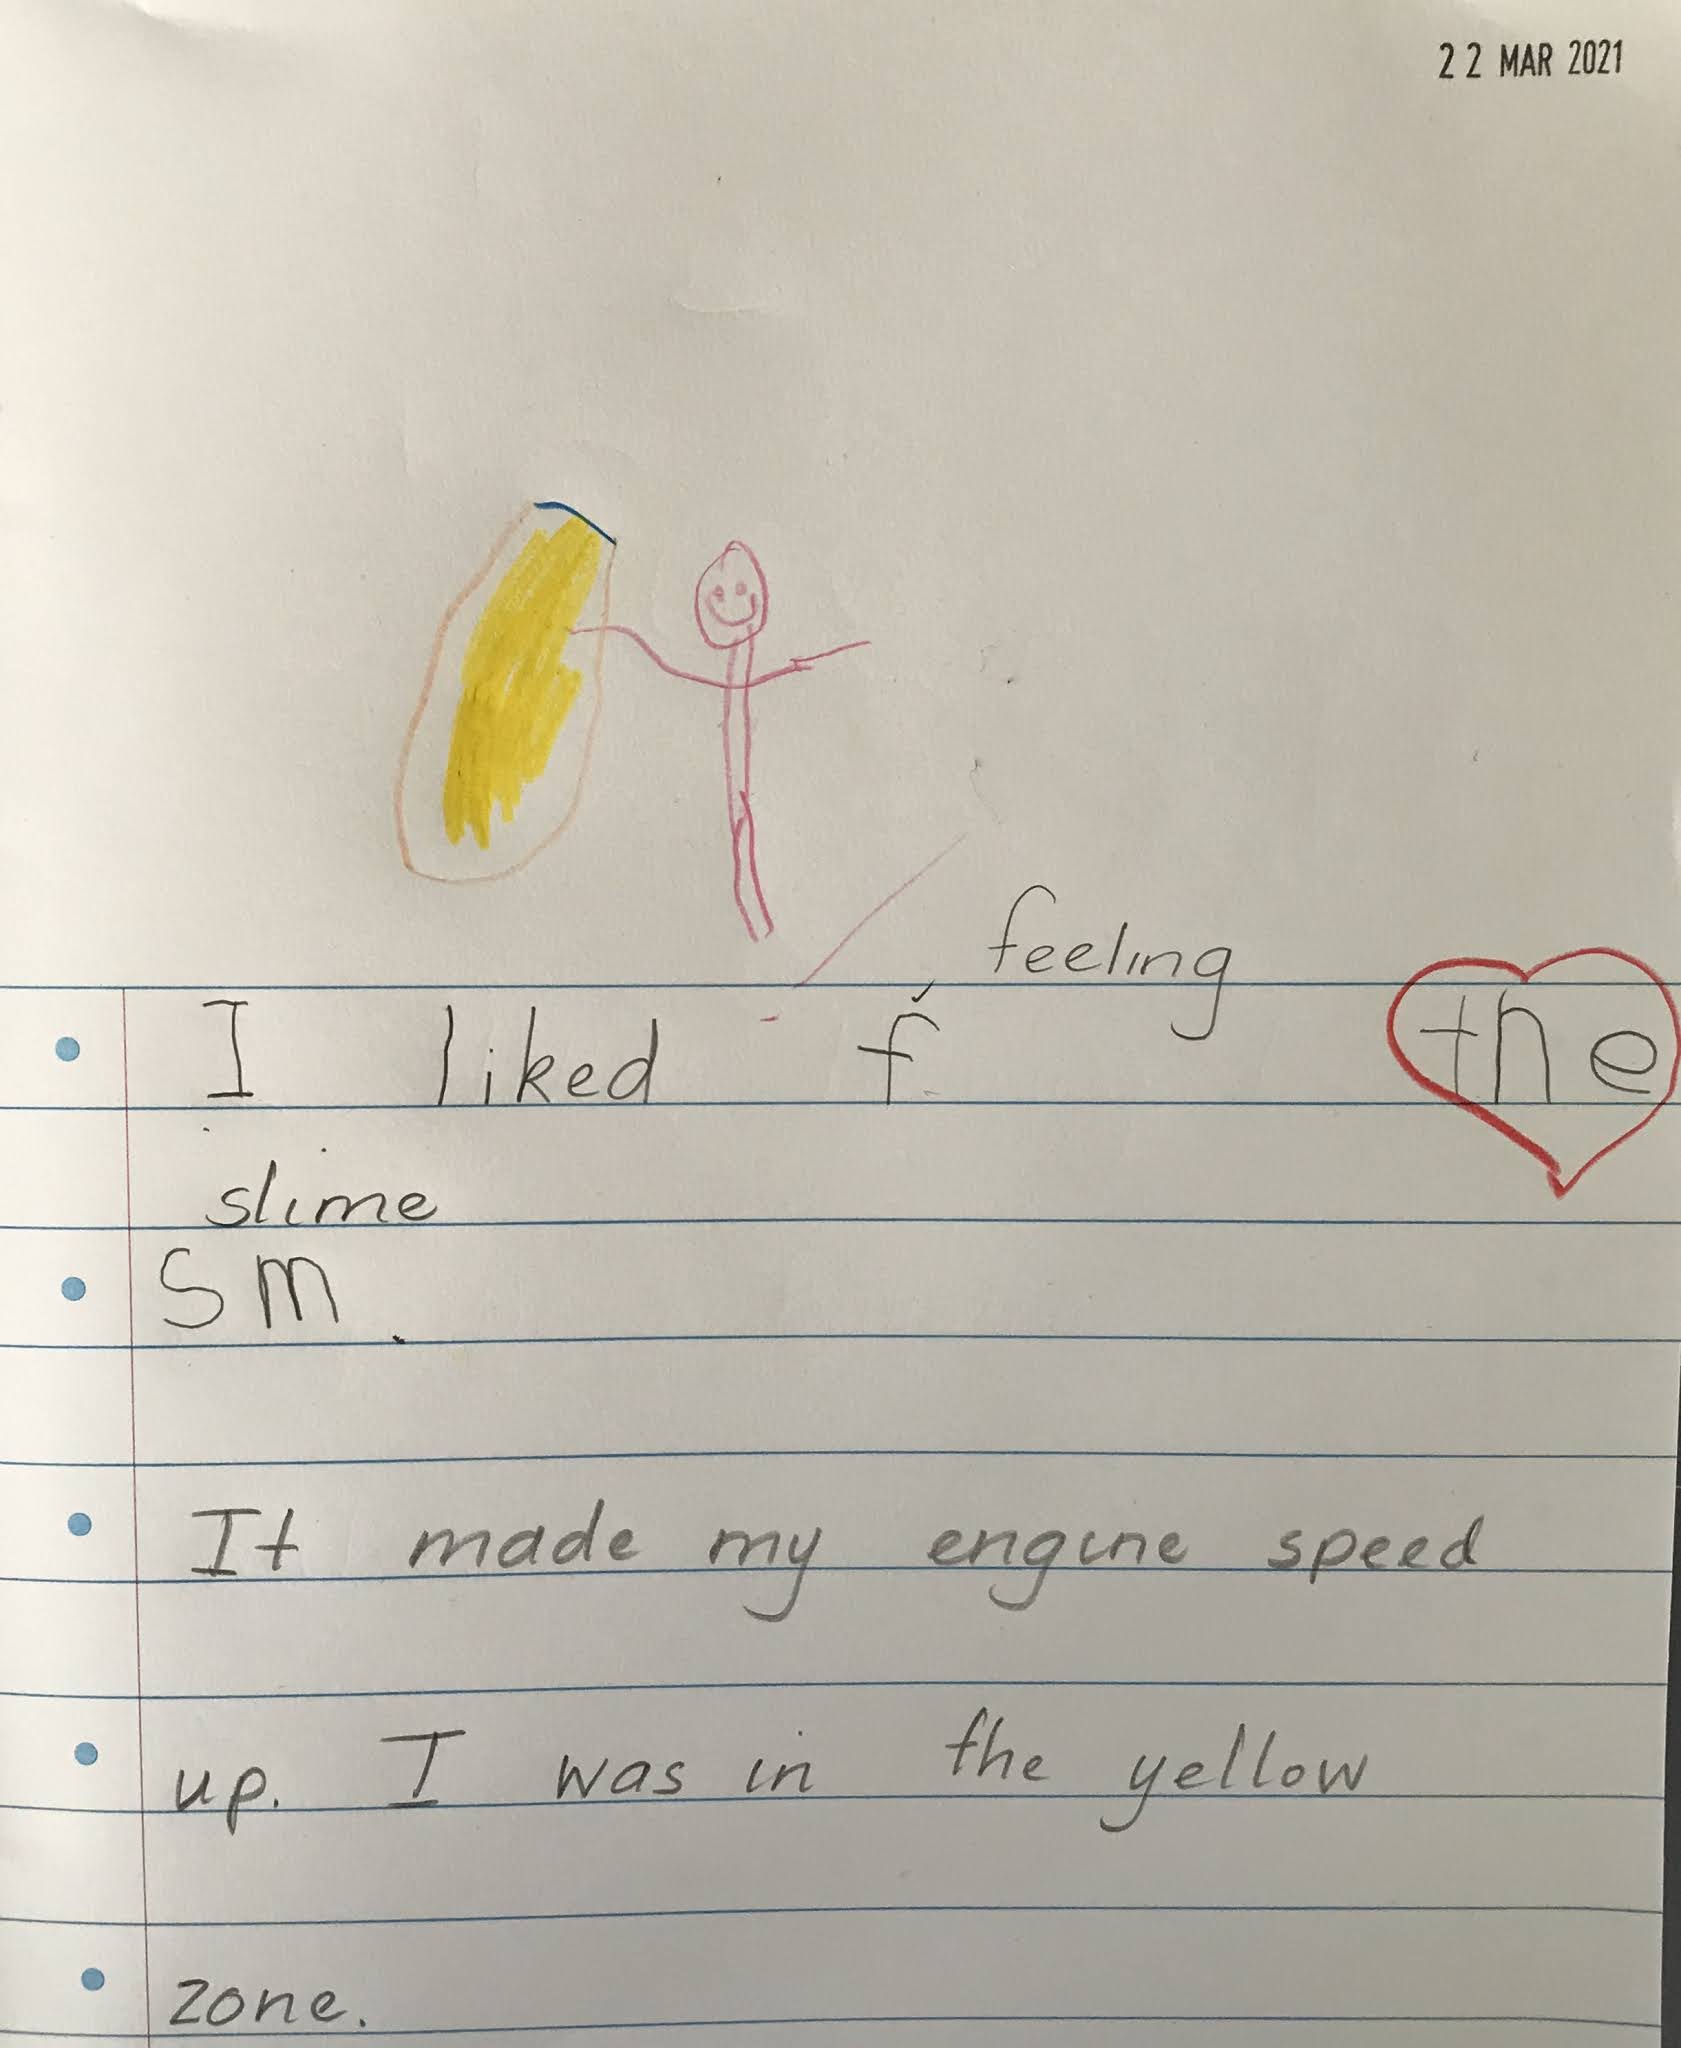 22 MAR 2021
feeling
I liked f the
slime
sm.
It made my engine speed
up. I was in the yellow
zone.